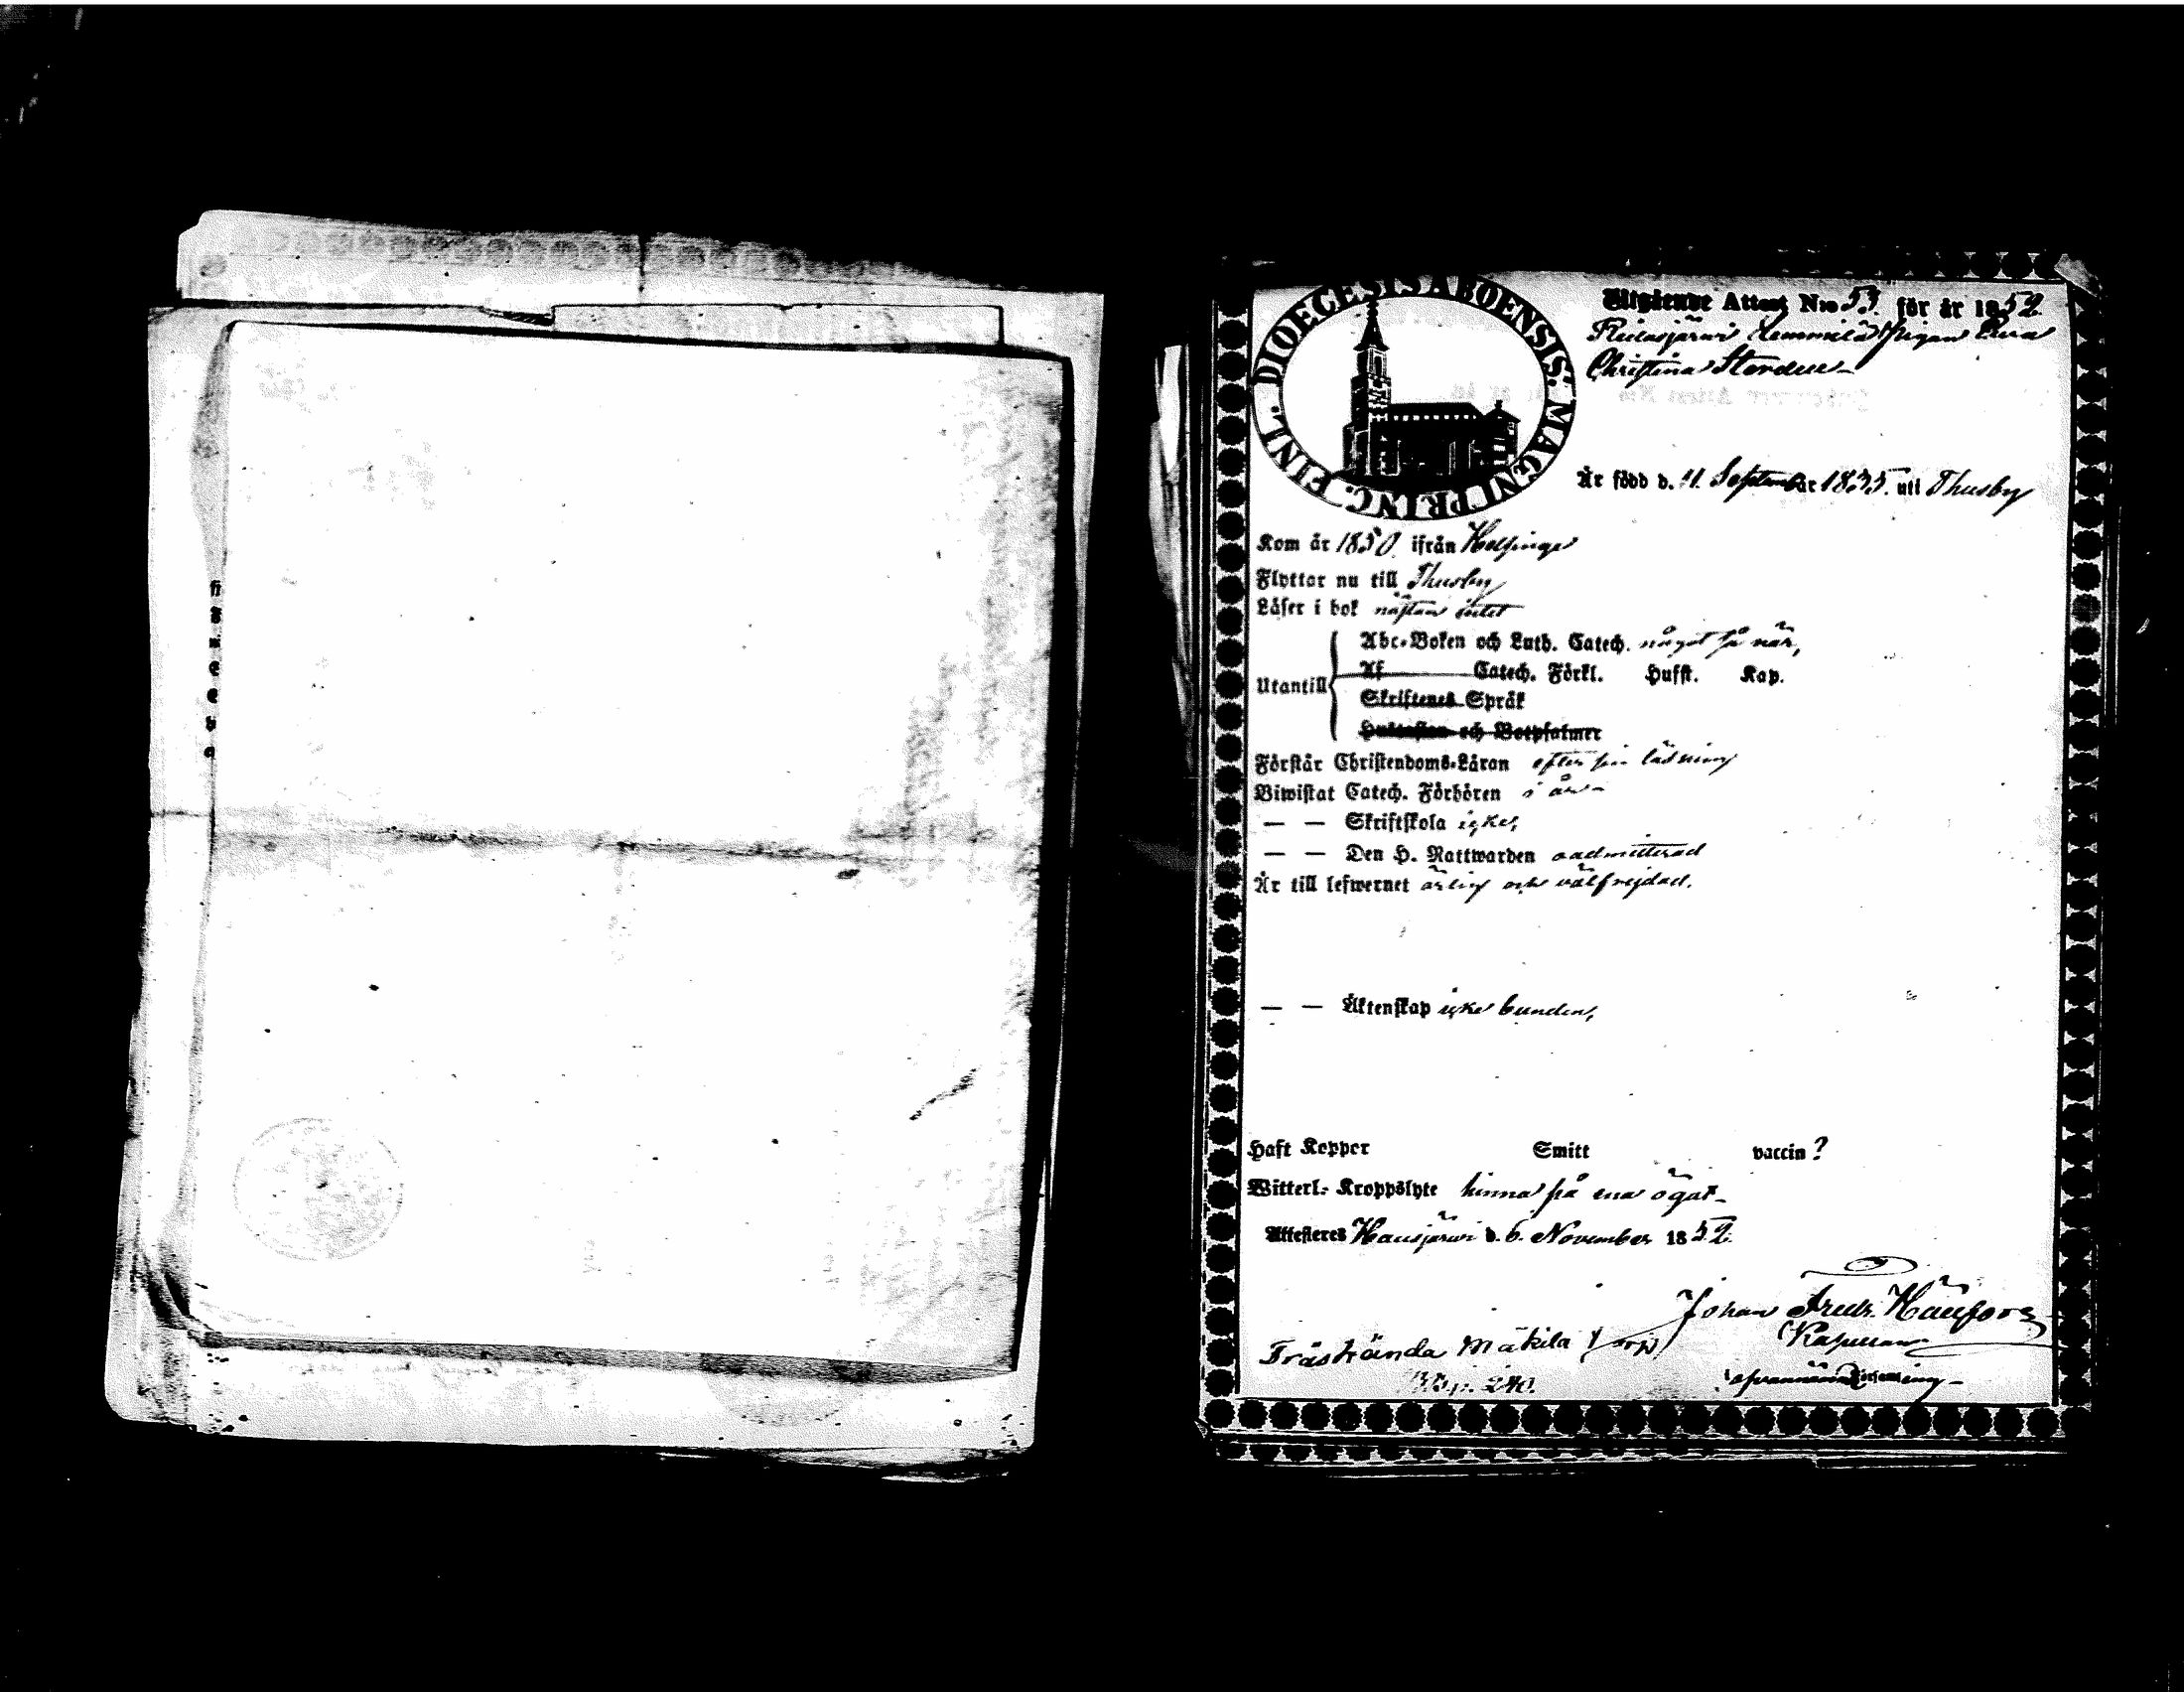 DIOECESIS ABOENSIS. MAGNI PRINC. FINL.
Utgående Attest N:o 53. för år 1852
pigan
Christina
Är född d. 11. September 1835. uti Thusby
Kom år 1850 ifrån Helsinge
Flyttar nu till Thusby
Läser i bok nästan intet
Abc-Boken och Luth. Catech. något så när,
Utantill
Af Catech. Förkl. Hufst. Kap.
Skriftenes Språk
Hustaflan och Botpsalmer
Förstår Christendoms-Läran efter sin läsning
Biwistat Catech. Förhören i år
— — Skriftskola icke,
— — Den H. Nattwarden oadmitterad
Är till lefwernet ärlig och välfrejdad.
— — Äktenskap icke bunden,
Haft Koppor Smitt vaccin?
Witterl. Kroppslyte hinna på ena ögat
Attesteras Hausjärvi d. 6. November 1852.
Johan Fredr.
Kapellan
Träskända Mäkilä torp
p. 240.